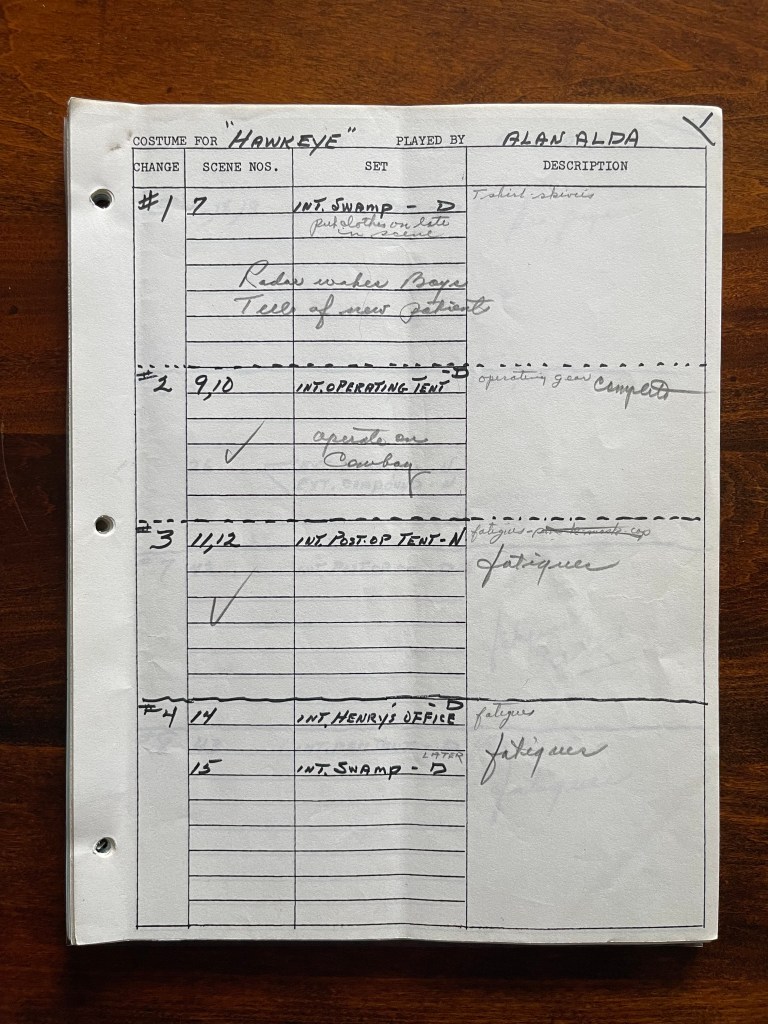 COSTUME FOR "HAWKEYE" PLAYED BY ALAN ALDA
CHANGE SCENE NOS. SET DESCRIPTION
#1 7 INT. SWAMP - D T-shirt - skivies
put clothes on late
in scene
Radar wakes Boys
Tells of new patients
#2 9,10 INT. OPERATING TENT - D operating gear Complete
operate on
Cowboy
#3 11,12 INT. POST-OP TENT - N fatigues
fatigues
#4 14 INT. HENRY'S OFFICE - D fatigues
fatigues
LATER
15 INT. SWAMP - D